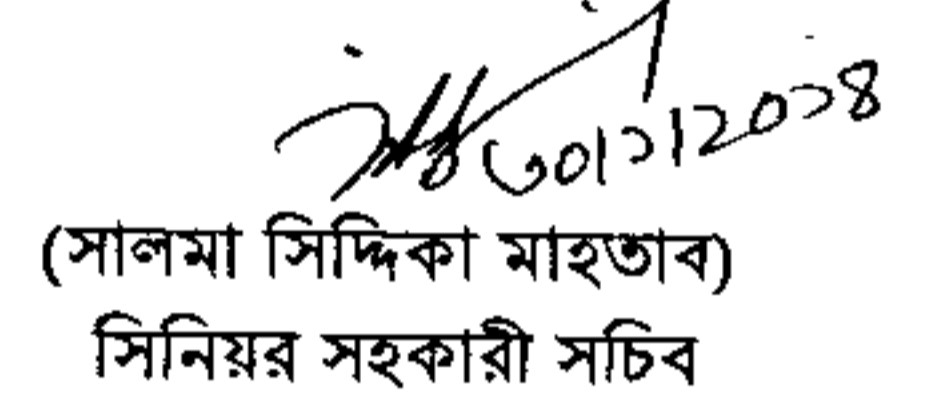 ৩০/১/২০১৪
(সালমা সিদ্দিকা মাহতাব)
সিনিয়র সহকারী সচিব